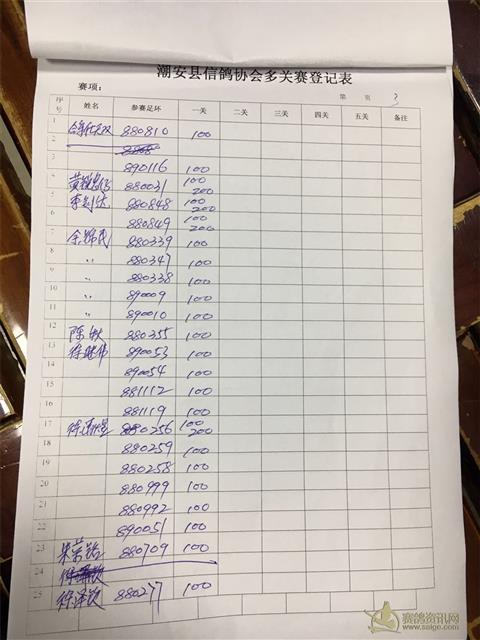 潮安县信鸽协会多关赛登记表
赛项： 第 页 3
序号 姓名 参赛足环 一关 二关 三关 四关 五关 备注
1 880810 100
2
3 890116 100
4 880031 100 200
5 880848 100 200
6 880849 100 200
7 余锦民 880339 100
8 〃 880347 100
9 〃 880338 100
10 〃 890009 100
11 〃 890010 100
12 陈 880355 100
13 徐继伟 890053 100
14 890054 100
15 881112 100
16 881119 100
17 880256 100 200
18 880259 100
19 880258 100
20 880999 100
21 880992 100
22 890051 100
23 朱荣 880709 100
24
25 徐泽钦 880277 100
赛鸽资讯网
www.saige.com